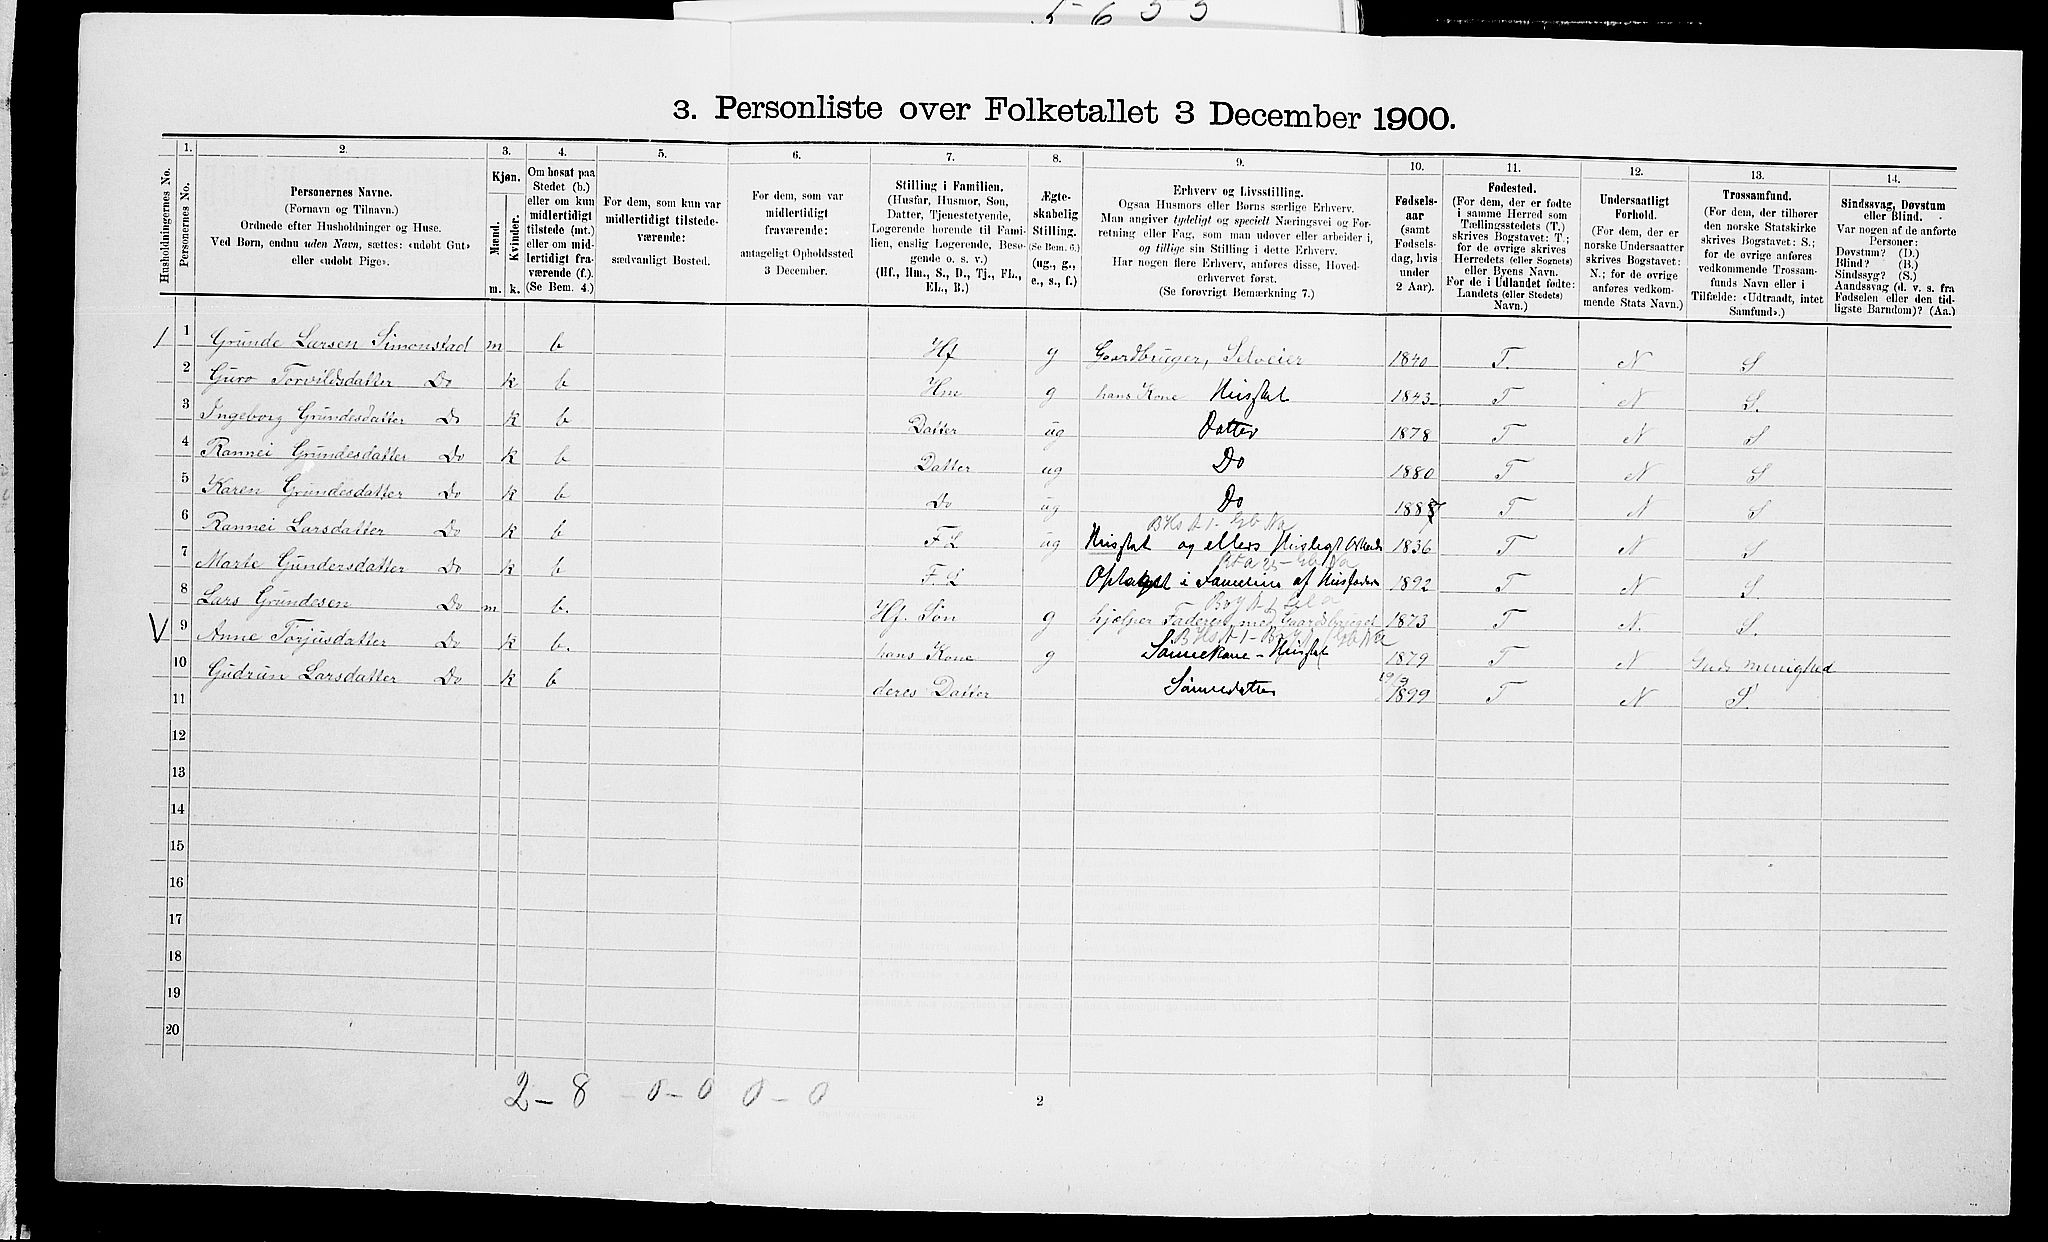 5655
3. Personliste over Folketallet 3 December 1900.
Husholdningernes No.
1. Personernes No.
2. Personernes Navne.
(Fornavn og Tilnavn.)
Ordnede efter Husholdninger og Huse.
Ved Børn, endnu uden Navn, sættes: «udøbt Gut»
eller «udøbt Pige».
3. Kjøn.
Mænd. Kvinder.
m. k.
4. Om bosat paa
Stedet (b.)
eller om kun
midlertidigt
tilstede (mt.)
eller om mid-
lertidigt fra-
værende (f.).
(Se Bem. 4.)
5. For dem, som kun var
midlertidigt tilstede-
værende:
sædvanligt Bosted.
6. For dem, som var
midlertidigt
fraværende:
antageligt Opholdssted
3 December.
7. Stilling i Familien.
(Husfar, Husmor, Søn,
Datter, Tjenestetyende,
Logerende hørende til Fami-
lien, enslig Logerende, Besø-
gende o. s. v.)
(Hf., Hm., S., D., Tj., FL.,
EL., B.)
8. Ægte-
skabelig
Stilling.
(Se Bem. 6.)
(ug., g.,
e., s., f.)
9. Erhverv og Livsstilling.
Ogsaa Husmors eller Børns særlige Erhverv.
Man angiver tydeligt og specielt Næringsvei og For-
retning eller Fag, som man udøver eller arbeider i,
og tillige sin Stilling i dette Erhverv.
Har nogen flere Erhverv, anføres disse, Hoved-
erhvervet først.
(Se forøvrigt Bemærkning 7.)
10. Fødsels-
aar
(samt
Fødsels-
dag, hvis
under
2 Aar).
11. Fødested.
(For dem, der er fødte
i samme Herred som
Tællingsstedets (T.)
skrives Bogstavet: T.;
for de øvrige skrives
Herredets (eller Sognets)
eller Byens Navn.
For de i Udlandet fødte:
Landets (eller Stedets)
Navn.)
12. Undersaatligt
Forhold.
(For dem, der er
norske Undersaatter
skrives Bogstavet:
N.; for de øvrige
anføres vedkom-
mende Stats Navn.)
13. Trossamfund.
(For dem, der tilhører
den norske Statskirke
skrives Bogstavet: S.;
for de øvrige anføres
vedkommende Trossam-
funds Navn eller i
Tilfælde: «Udtraadt, intet
Samfund».)
14. Sindssvag, Døvstum
eller Blind.
Var nogen af de anførte
Personer:
Døvstum? (D.)
Blind? (B.)
Sindssyg? (S.)
Aandssvag (d. v. s. fra
Fødselen eller den tid-
ligste Barndom)? (Aa.)
1 Grunde Larsen Simonstad m b Hf g Gaardbruger, Selveier 1840 T. N S
2 Guro Torvildsdatter Do k b Hm g hans Kone Husstel 1843 T N S.
3 Ingeborg Grundesdatter Do k b Datter ug Datter 1878 T N S
4 Rannei Grundesdatter Do k b Datter ug Do 1880 T N S
5 Karen Grundesdatter Do k b Do ug Do T N S
6 Rannei Larsdatter Do k b FL ug Husstel og ellers Husligt Arbeide 1836 T N S
7 Marte Gundersdatter Do k b FL Optaget i Familien af Husfaderen 1892 T N S
8 Lars Grundesen Do m b. Hf. Søn g hjælper Faderen med Gaardsbruget 1873 T N. S.
V 9 Anne Torjusdatter Do k b. hans Kone g Sønnekone - Husstel 1879 T N Guds menighed
10 Gudrun Larsdatter Do k b deres Datter Sønnedatter 1899 T N S.
11
12
13
14
15
16
17
18
19
20
2 - 8 0 - 0 0 - 0
2